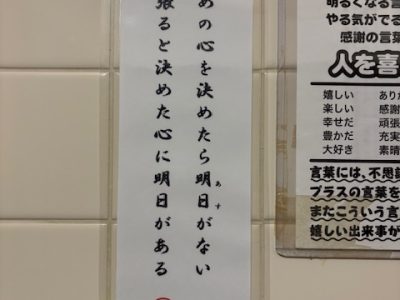 めの心を決めたら明日がない
あす
張ると決めた心に明日がある
明るくなる言
やる気がでる
感謝の言葉
人を喜
嬉しい
楽しい
幸せだ
豊かだ
大好き
感謝
頑張
充実
素晴
言葉には、不思
プラスの言葉を
またこういう言
嬉しい出来事が